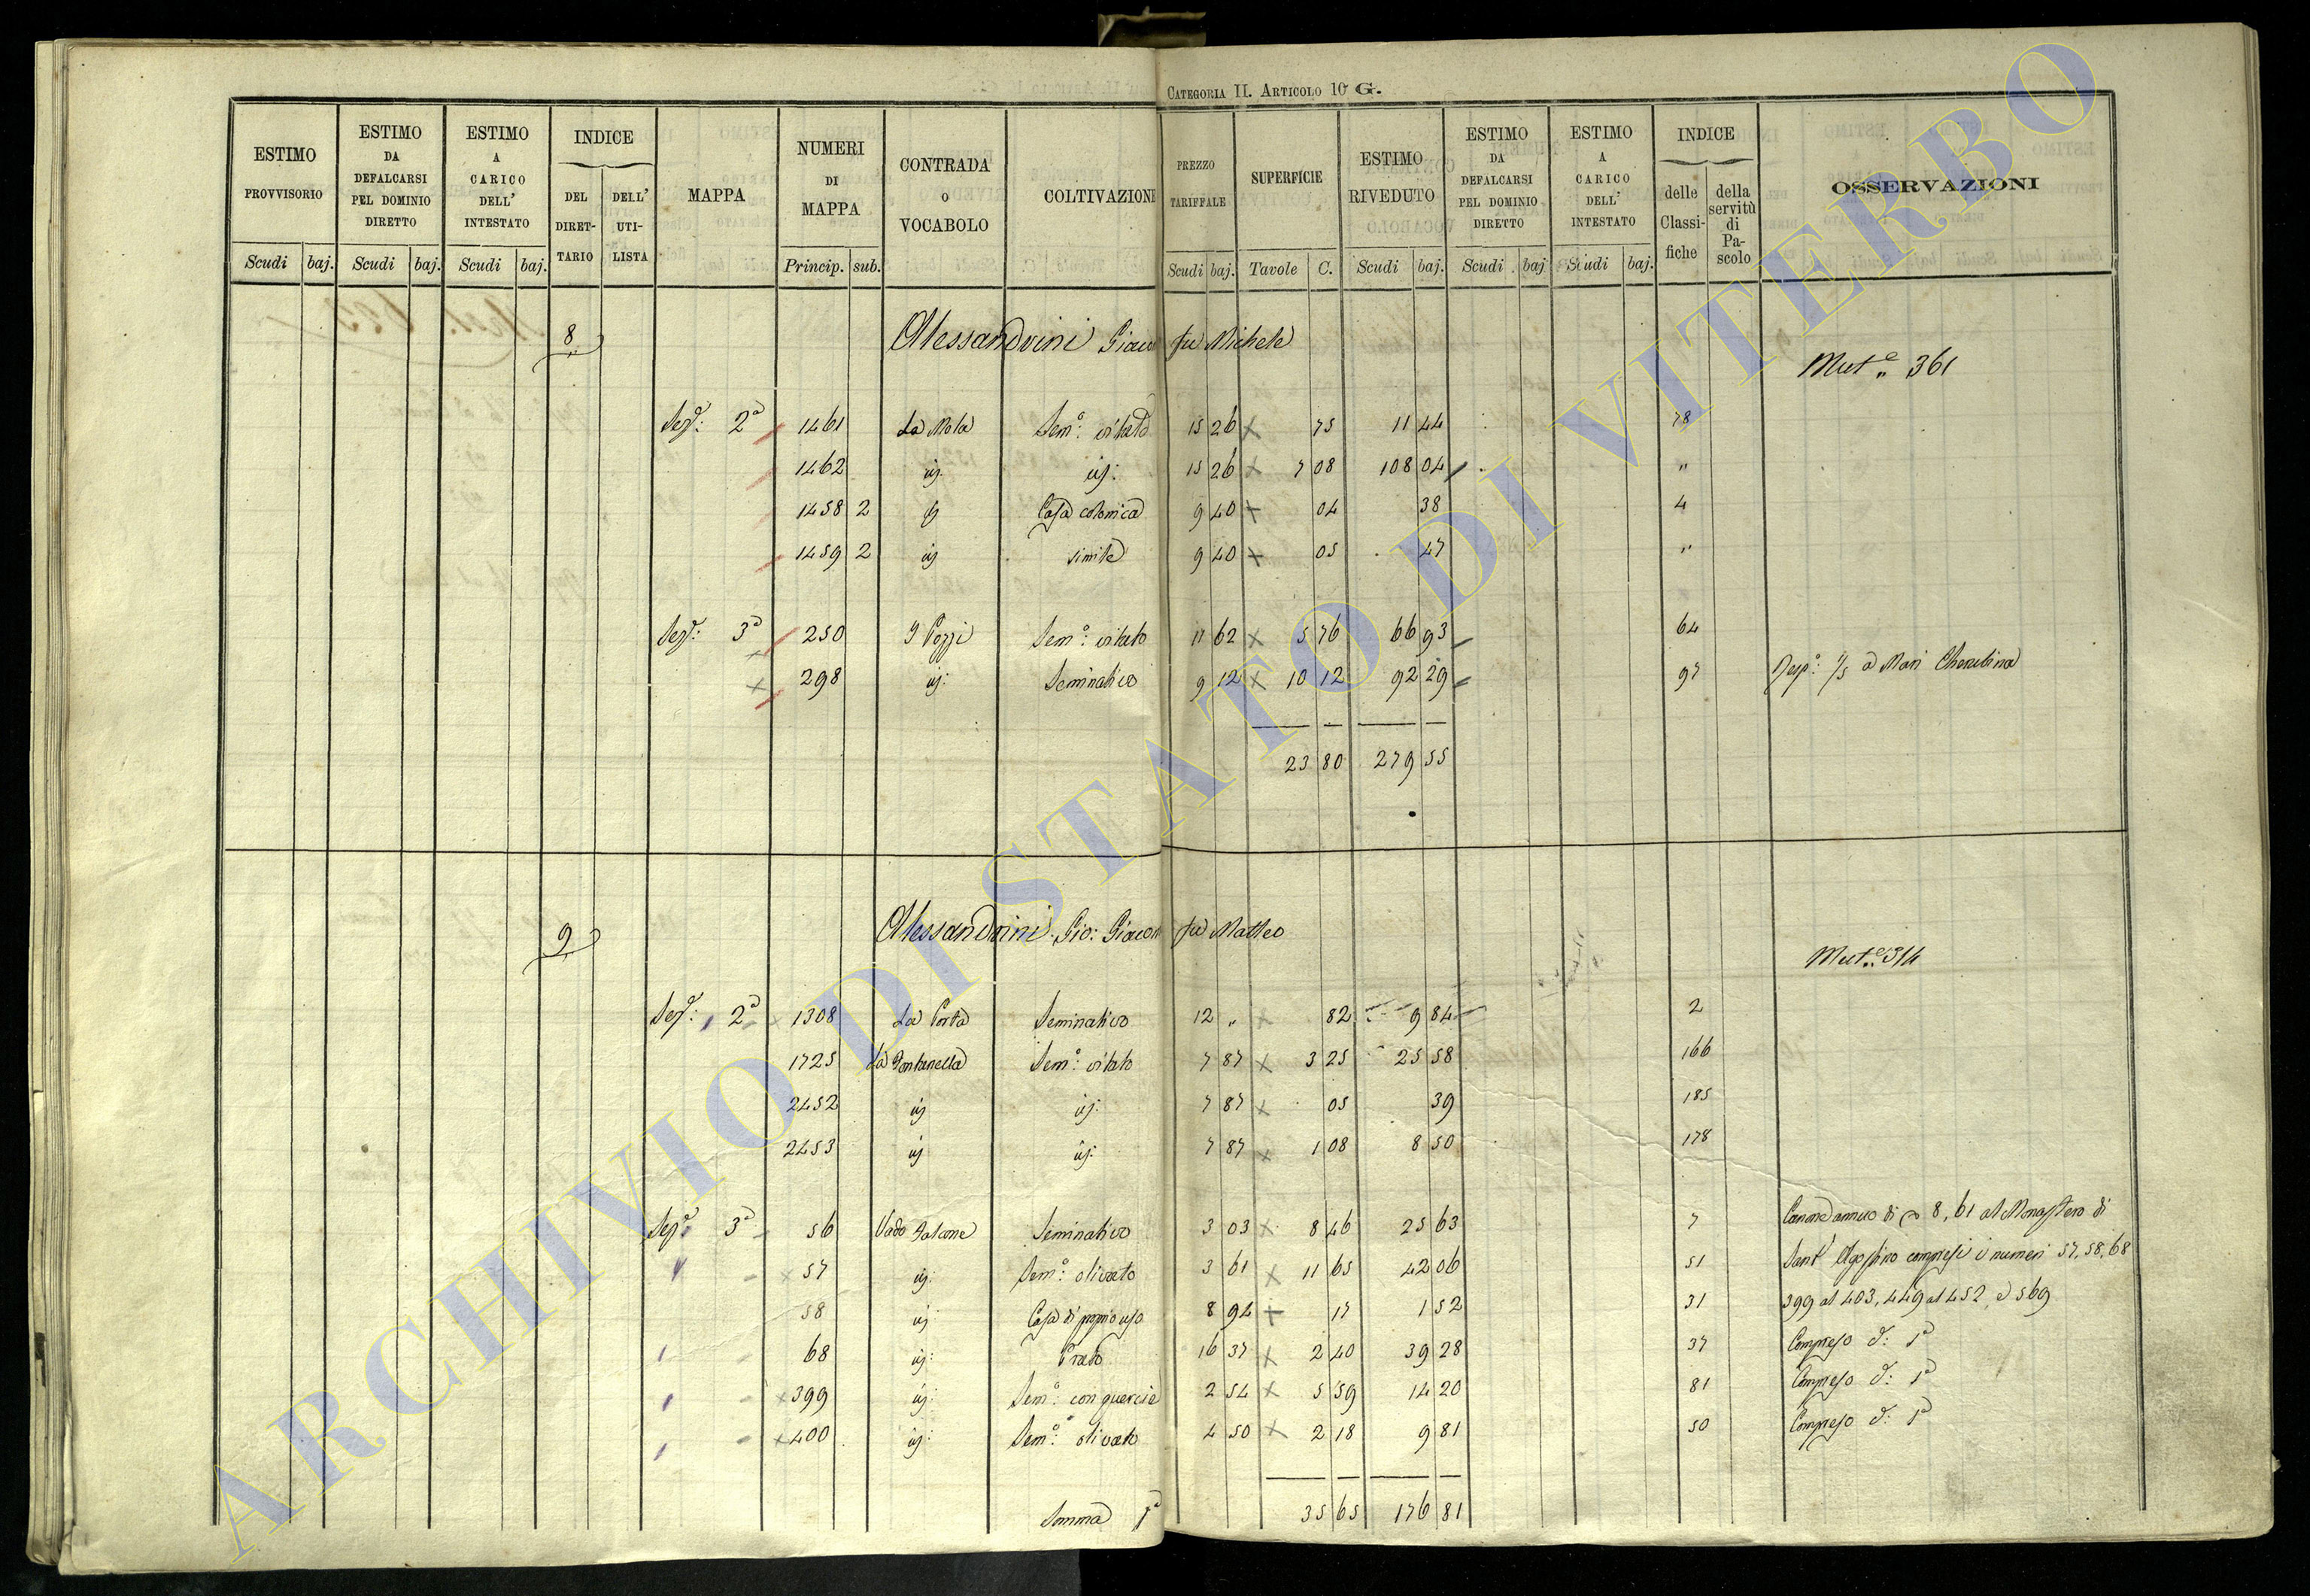 CATEGORIA II. ARTICOLO 10 G.
ESTIMO PROVVISORIO Scudi baj.
ESTIMO DA DEFALCARSI PEL DOMINIO DIRETTO Scudi baj.
ESTIMO A CARICO DELL' INTESTATO Scudi baj.
INDICE DEL DIRETTARIO DELL' UTILISTA
MAPPA
NUMERI DI MAPPA Princip. sub.
CONTRADA O VOCABOLO
COLTIVAZIONE
PREZZO TARIFFALE Scudi baj.
SUPERFICIE Tavole C.
ESTIMO RIVEDUTO Scudi baj.
ESTIMO DA DEFALCARSI PEL DOMINIO DIRETTO Scudi baj
ESTIMO A CARICO DELL' INTESTATO Scudi baj.
INDICE delle Classifiche della servitù di Pascolo
OSSERVAZIONI
8 Alessandrini Giaco fu Michele
Mut.e 361
Sez.e: 2a 1461 La Mola Sem.o: vitato 15 26 75 11 44 78
1462 id. id: 15 26 7 08 108 04 "
1458 2 id Casa colonica 9 40 04 38 4
1459 2 id simile 9 40 05 47 "
Sez.e: 3a 250 I Pozzi Sem.o: vitato 11 62 5 76 66 93 64
298 id: Seminativo 9 12 10 12 92 29 97 1/5 a Mari Cherubina
23 80 279 55
9 Alessandrini Gio: Giacom fu Matteo
Mut.e 314
Sez.e: 2a 1308 La Porta Seminativo 12 " 82 9 84 2
1725 La Fontanella Sem.o: vitato 7 87 3 25 25 58 166
2452 id id: 7 87 05 39 185
2453 id id: 7 87 1 08 8 50 178
Sez.e 3a 56 Vado Falcone Seminativo 3 03 8 46 25 63 7 Canone annuo di 8,61 al Monastero di
57 id: Sem.o: olivato 3 61 11 65 42 06 51 Sant' Agostino compresi i numeri 57, 58, 68
58 id Casa di proprio uso 8 94 17 1 52 31 399 al 403, 449 al 452, e 569
68 id: Prato 16 37 2 40 39 28 37 Compreso d: 1a
399 id: Sem.o: con quercie 2 54 5 59 14 20 81 Compreso d: 1a
400 id: Sem.o: olivato 4 50 2 18 9 81 50 Compreso d: 1a
Somma 1a 35 65 176 81
ARCHIVIO DI STATO DI VITERBO